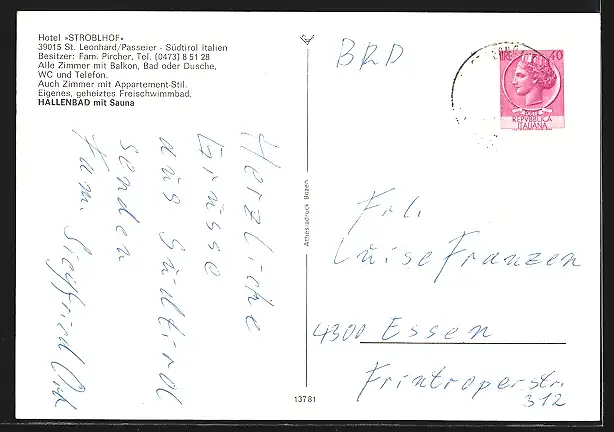 Hotel »STROBLHOF«
39015 St. Leonhard/Passeier - Südtirol Italien
Besitzer: Fam. Pircher, Tel. (0473) 8 51 28
Alle Zimmer mit Balkon, Bad oder Dusche,
WC und Telefon.
Auch Zimmer mit Appartement-Stil.
Eigenes, geheiztes Freischwimmbad.
HALLENBAD mit Sauna
Herzliche
Grüsse
aus Südtirol
senden
Fam. Siegfried
Athesiadruck Bozen
13781
BRD
40
POSTE
REPVBBLICA
ITALIANA
Frl.
Luise Franzen
4300 Essen
Frintroperstr.
312